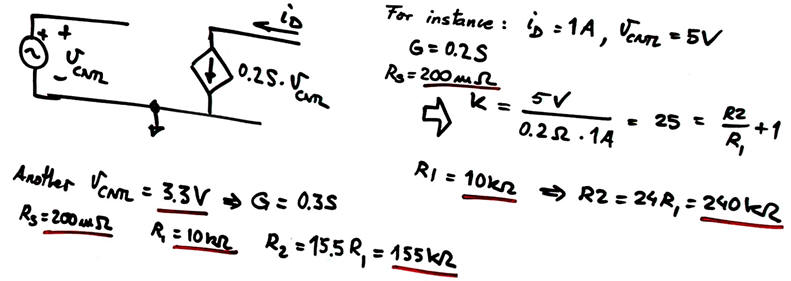 i_D
+ +
v_CNTL
-
0.2S. v_CNTL
For instance: i_D = 1A, v_CNTL = 5V
G = 0.2S
R_S = 200mΩ
⇒ K = 5V / 0.2Ω . 1A = 25 = R2 / R_1 + 1
R1 = 10kΩ ⇒ R2 = 24R_1 = 240kΩ
Another v_CNTL = 3.3V ⇒ G = 0.3S
R_S = 200mΩ R_1 = 10kΩ R_2 = 15.5 R_1 = 155kΩ